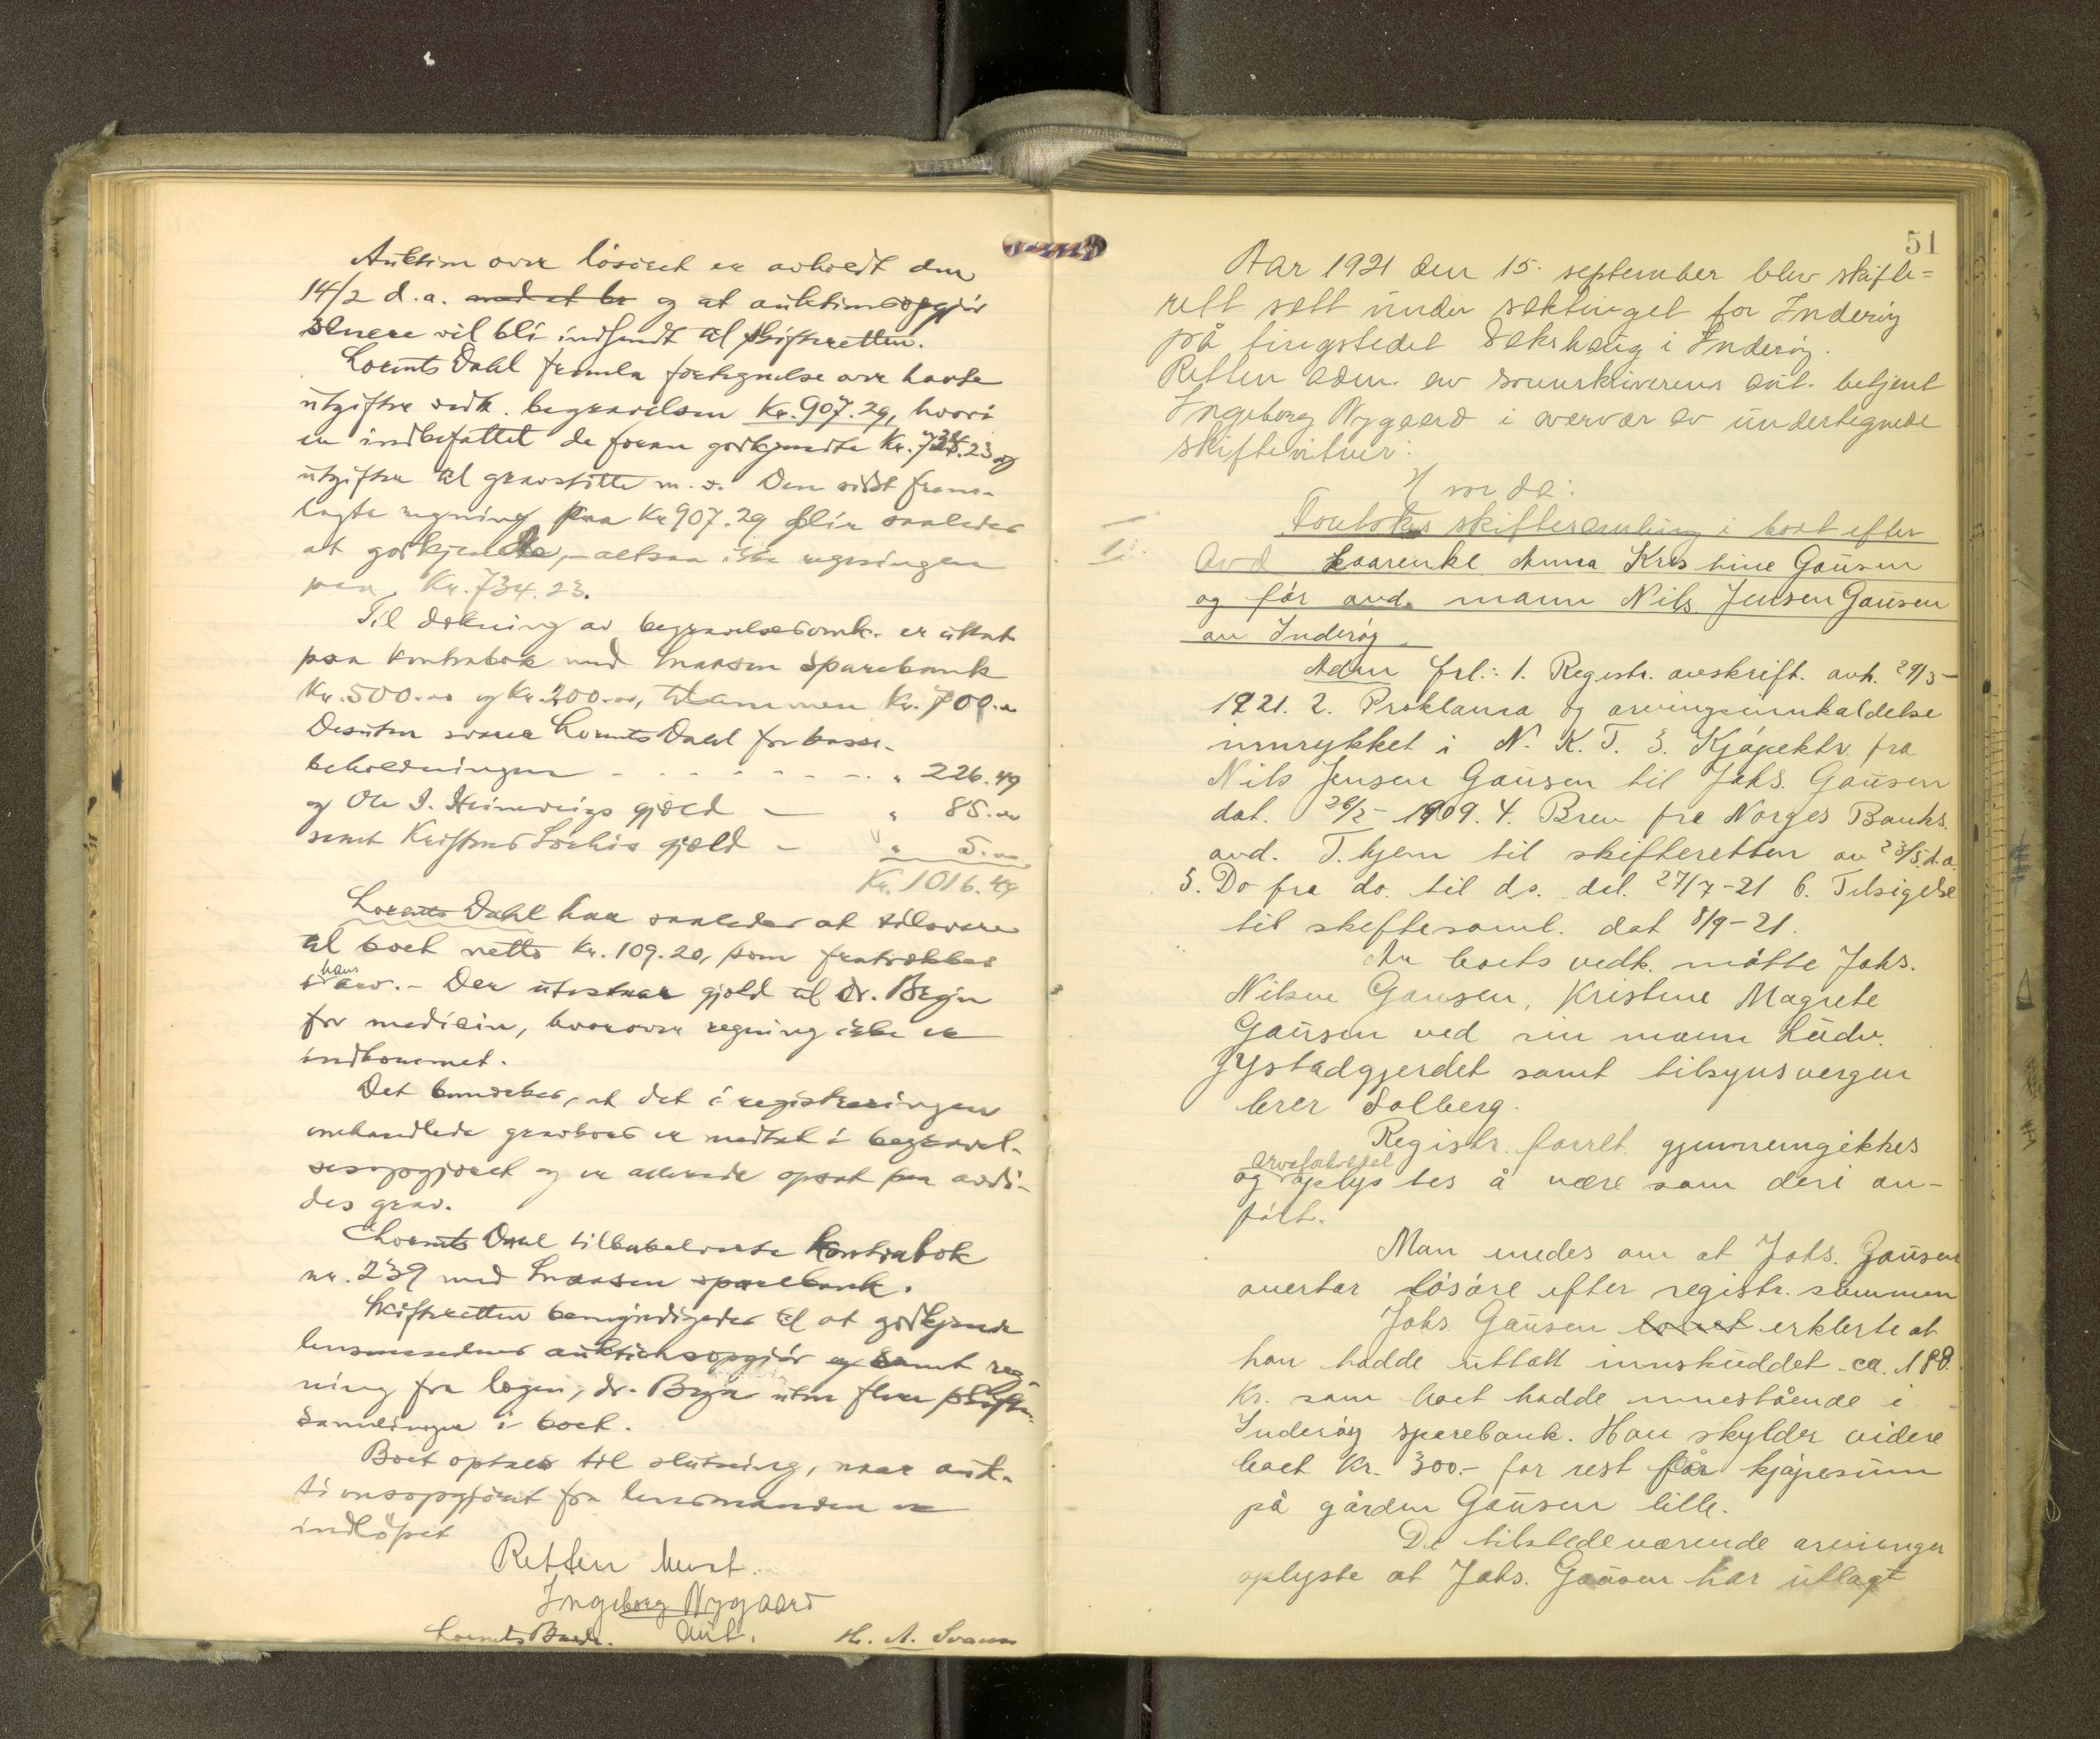 Auktion over løsøret er avholdt den
14/2 d.a. med at br og at auktionsopgjør
senere vil bli indsendt til skifteretten.
Lornts Dahl fremla fortegnelse over havte
utgifter vedk. begravelsen Kr. 907.29, hvori
er indbefattet de foran godkjendte Kr. 734.23 og
utgifter til gravstøtte m.v. Den sidst frem-
lagte regning paa Kr 907.29 blir saaledes
at godkjende, - altsaa ikke regningen
paa Kr. 734.23.
Til dækning av begravelsesomk. er uttat
paa kontrabok med Snaasen Sparebank
Kr. 500.00 og Kr. 200.00, tilsammen Kr. 700.00
Desuten svarer Lornts Dahl for kasse-
beholdningen - - - - - - - " 226.49
og Ole I. gjæld — " 85.00
samt gjæld - " 5.00
Kr. 1016.49
Lornts Dahl har saaledes at tilsvare
til boet netto Kr. 109.20, som fratrækkes
i hans arv. - Der utestaar gjæld til dr. Bryn
for medicin, hvorover regning ikke er
indkommet.
Det bemerkes, at det i registreringen
omhandlede gravkors er medtat i begravel-
sesopgjøret og er allerede opsat paa avdø-
des grav.
Lornts Dahl tilbakeleverte kontrabok
nr. 239 med Snaasen sparebank.
Skifteretten bemyndigedes til at godkjende
lensmandens auktionsopgjør og samt reg-
ning fra logen, dr. Bryn uten flere skifte-
samlinger i boet.
Boet optaes til slutning, naar auk-
tionsopgjøret fra lensmanden er
indløpet
Retten hevet.
Ingeborg Nygaard
aut.
51
Aar 1921 den 15. september blev skifte=
rett sett under sektinget for Inderøy
på tingstedet Sakshaug i Inderøy.
Retten adm. av sorenskriverens aut. betjent
Ingeborg Nygaard i overvær av undertegnede
skiftevitner:
Hvorda:
Foretokes skiftesamling i boet efter
avd kaarenke Anna Kristine Gausen
og før avd. mann Nils Jensen Gausen
av Inderøy
Adm frl.: 1. Registr. avskrift. avh. 29/3-
1921. 2. Proklama og arvingsinnkaldelse
innrykket i N. K. T. 3. Kjøpektr. fra
Nils Jensen Gausen til Johs. Gausen
dat. 26/2- 1909. 4. Brev fra Norges Banks.
avd. T.hjem til skifteretten av 23/5 d.a.
5. Do fra do. til do. dat. 27/7-21 6. Tilsigelse
til skiftesaml. dat 8/9-21.
Av boets vedk. møtte Johs.
Nilsen Gausen, Kristine Magrete
Gausen ved sin mann Ludv.
Jystadgjerdet samt tilsynsvergen
lærer Solberg.
Registr. forret. gjennemgikkes
og arveforholdet oplystes å være som deri an-
ført.
Man enedes om at Johs. Gausen
overtar løsøre efter registr. summen
Johs. Gausen boet erklerte at
han hadde uttatt innskuddet ca. 180.
Kr. som boet hadde innestående i
Inderøy sparebank. Han skylder videre
boet Kr. 300.- for rest for kjøpesum
på gården Gausen lille.
De tilstedeværende arvinger
oplyste at Johs. Gausen har utlagt